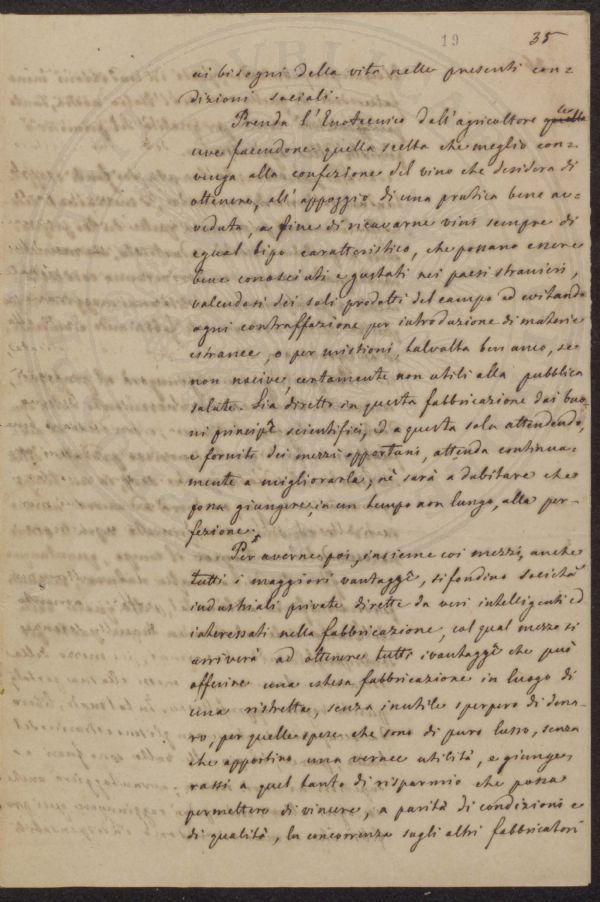 19 35
ai bisogni della vita nelle presenti con=
dizioni sociali.
Prenda l'Enotecnico dall'agricoltore quelle le
uve facendone quella scelta che meglio con=
venga alla confezione del vino che desidera di
ottenere, all'appoggio di una pratica bene av=
veduta, a fine di ricavarne vini sempre di
egual tipo caratteristico, che possano essere
bene conosciuti e gustati nei paesi stranieri,
valendosi dei soli prodotti del campo ed evitando
ogni contraffazione per introduzione di materie
estranee, o per mistioni, talvolta ben anco, se
non nocive, certamente non utili alla pubblica
salute. Sia diretto in questa fabbricazione dai buo=
ni principî scientifici, ed a questa solo attendendo,
e fornito dei mezzi opportuni, attenda continua=
mente a migliorarla, nè sarà a dubitare che
possa giungere, in un tempo non lungo, alla per=
fezione.
Per averne poi, insieme coi mezzi, anche
tutti i maggiori vantaggî, si fondino società
industriali private dirette da veri intelligenti ed
interessati nella fabbricazione, col qual mezzo si
arriverà ad ottenere tutti i vantaggî che può
offerire una estesa fabbricazione in luogo di
una ristretta, senza inutile sperpero di dena=
ro, per quelle spese che sono di puro lusso, senza
che apportino una verace utilità, e giunge,
rassi a quel tanto di risparmio che possa
permettere di vincere, a parità di condizioni e
di qualità, la concorrenza sugli altri fabbricatori